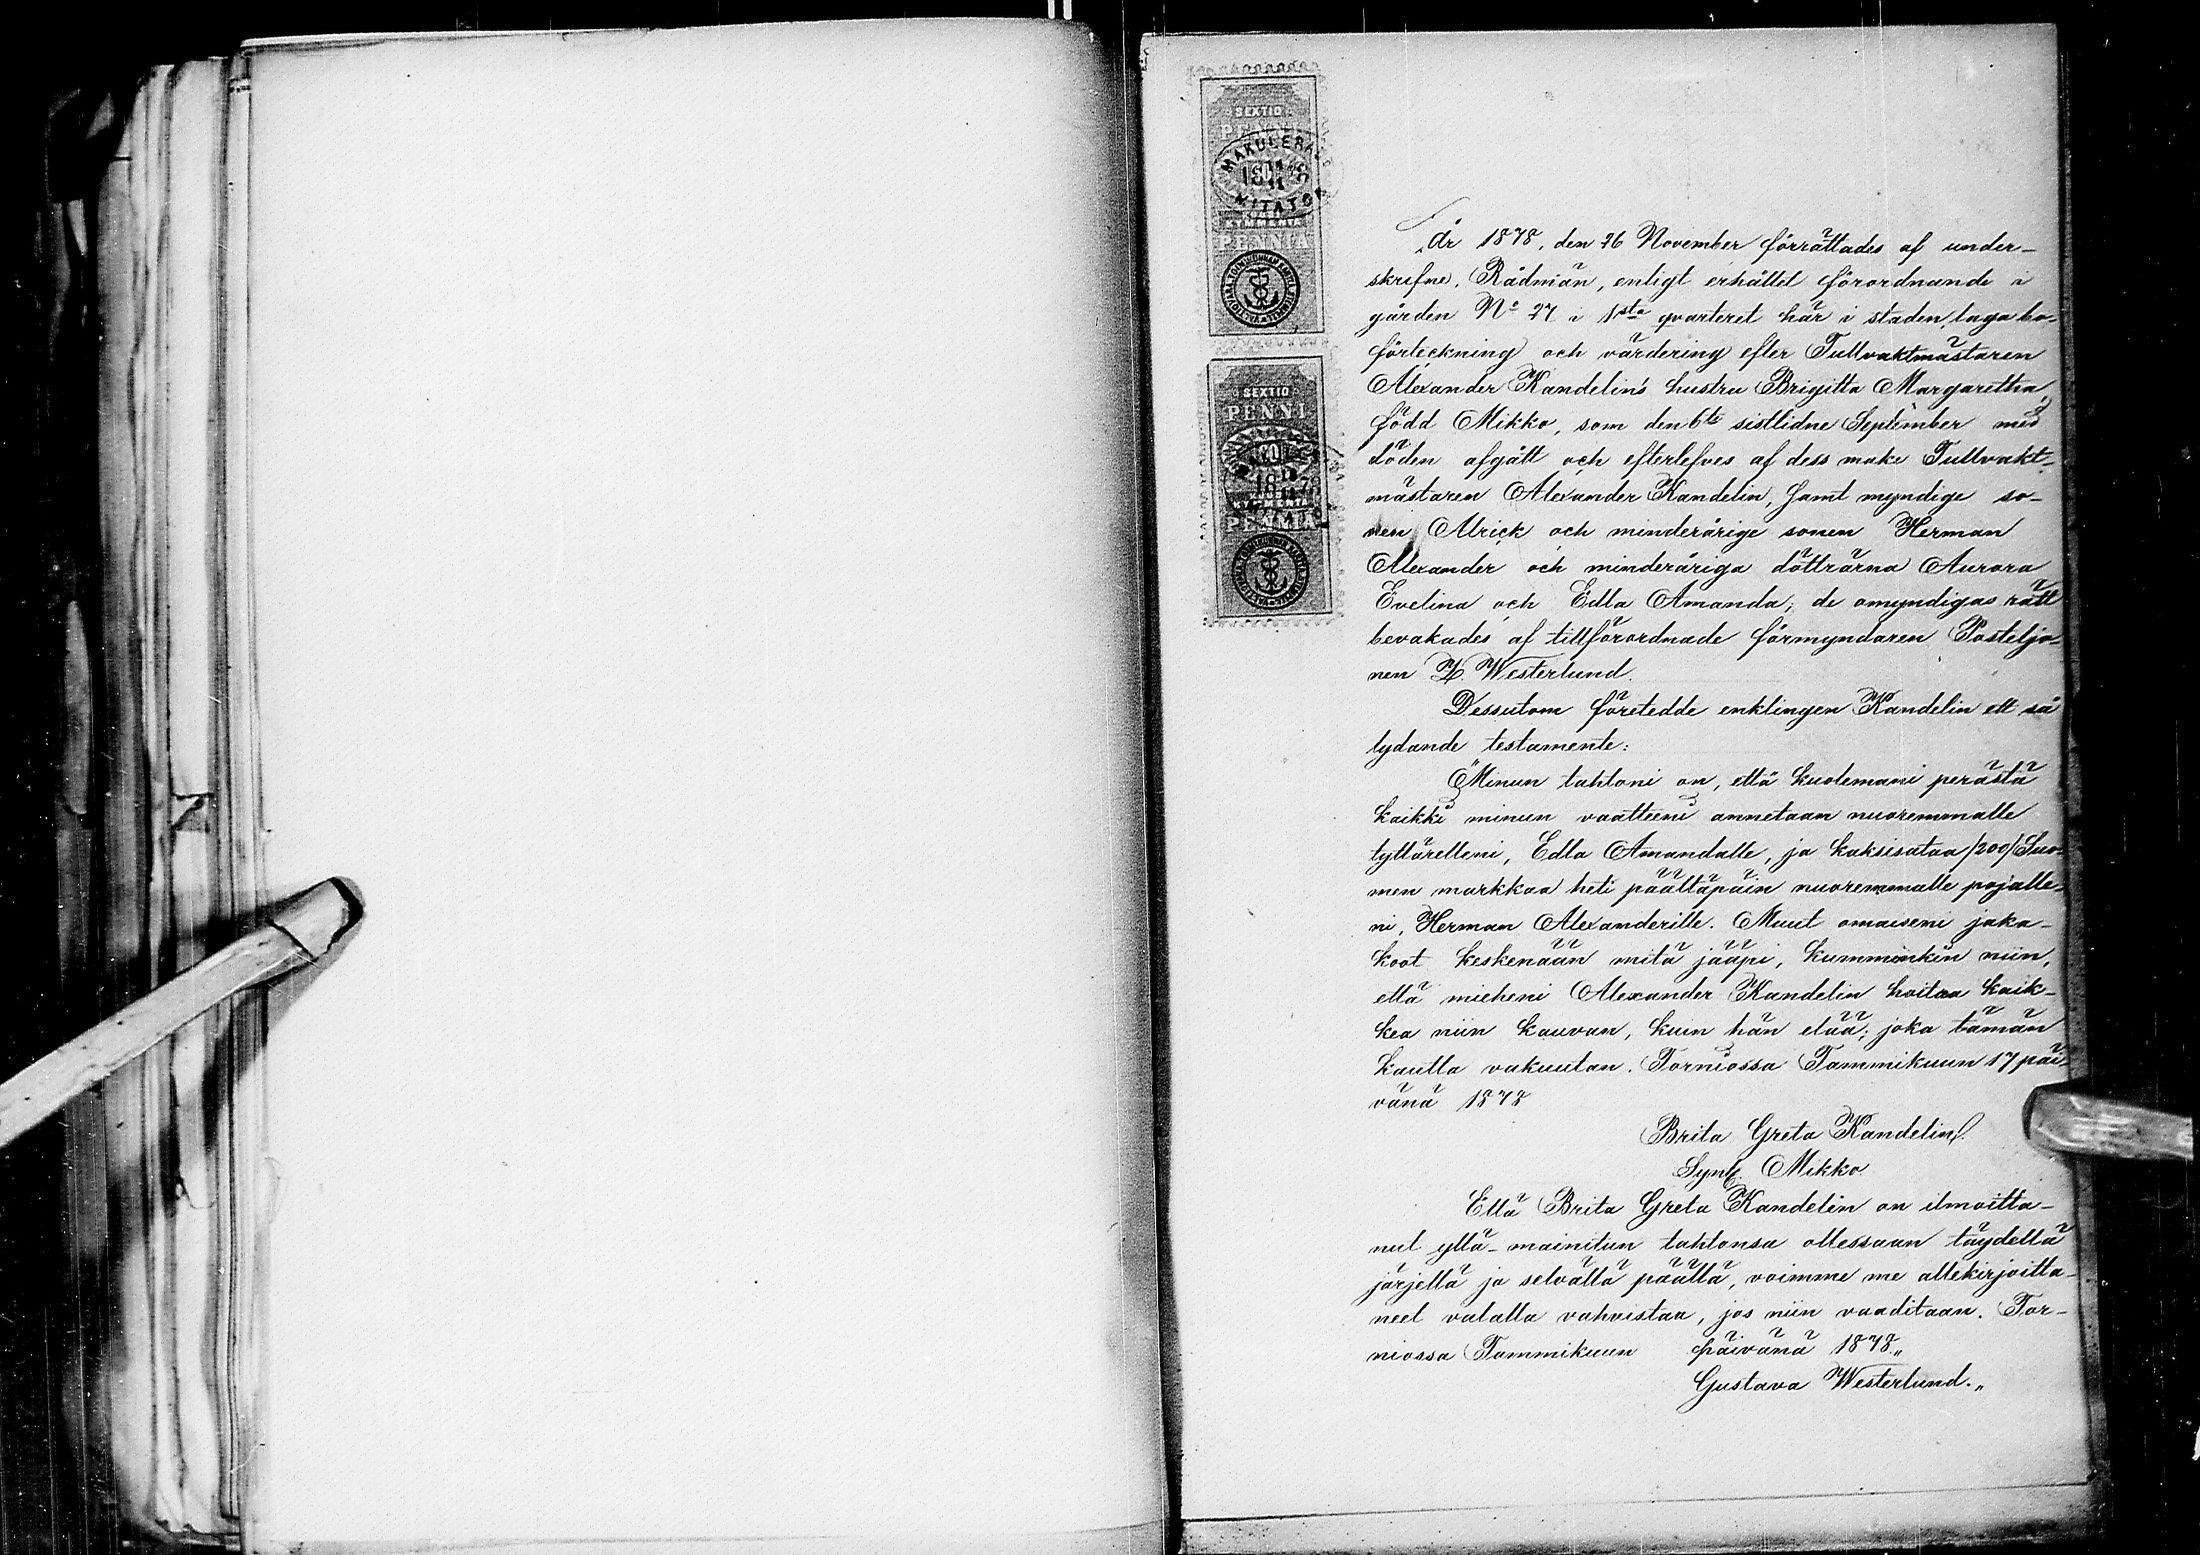 SEXTIO
PENNI
MAKULERAD
18 78
MITÄTÖN
KYMMENTÄ
PENNIÄ
SEXTIO
PENNI
18 78
PENNIÄ
År 1878, den 26 November förrättades af under-
skrifne, Rådmän, enligt erhållet förordnande i
gården No 27 i 1sta qvarteret här i staden, laga bo-
förteckning och värdering efter Tullvaktmästaren
Alexander Kandelin's hustru Brigitta Margaretha
född Mikko, som den 6te sistlidne September med
döden afgått och efterlefves af dess make Tullvakt-
mästaren Alexander Kandelin, samt myndige so-
nen Alrick och minderårige sonen Herman
Alexander och minderåriga döttrarna Aurora
Evelina och Edla Amanda; de omyndigas rätt
bevakades af tillförordnade förmyndaren Posteljo-
nen Z. Westerlund.
Dessutom företedde enklingen Kandelin ett så
lydande testamente:
"Minun tahtoni on, että kuolemani perästä
kaikki minun vaatteeni annetaan nuoremmalle
tyttärelleni, Edla Amandalle, ja kaksisataa /200/ Suo-
men markkaa heti päältäpäin nuoremmalle pojalle-
ni, Herman Alexanderille. Muut omaiseni jaka-
koot keskenään mitä jääpi, kumminkin niin,
että mieheni Alexander Kandelin hoitaa kaik-
kea niin kauvan, kuin hän elää; joka tämän
kautta vakuutan. Torniossa Tammikuun 17 päi-
vänä 1878
Brita Greta Kandelin
Synt. Mikko
Että Brita Greta Kandelin on ilmoitta-
nut yllä-mainitun tahtonsa ollessaan täydellä
järjellä ja selvällä päällä, voimme me allekirjoitta-
neet valalla vahvistaa, jos niin vaaditaan. Tor-
niossa Tammikuun päivänä 1878"
Gustava Westerlund."